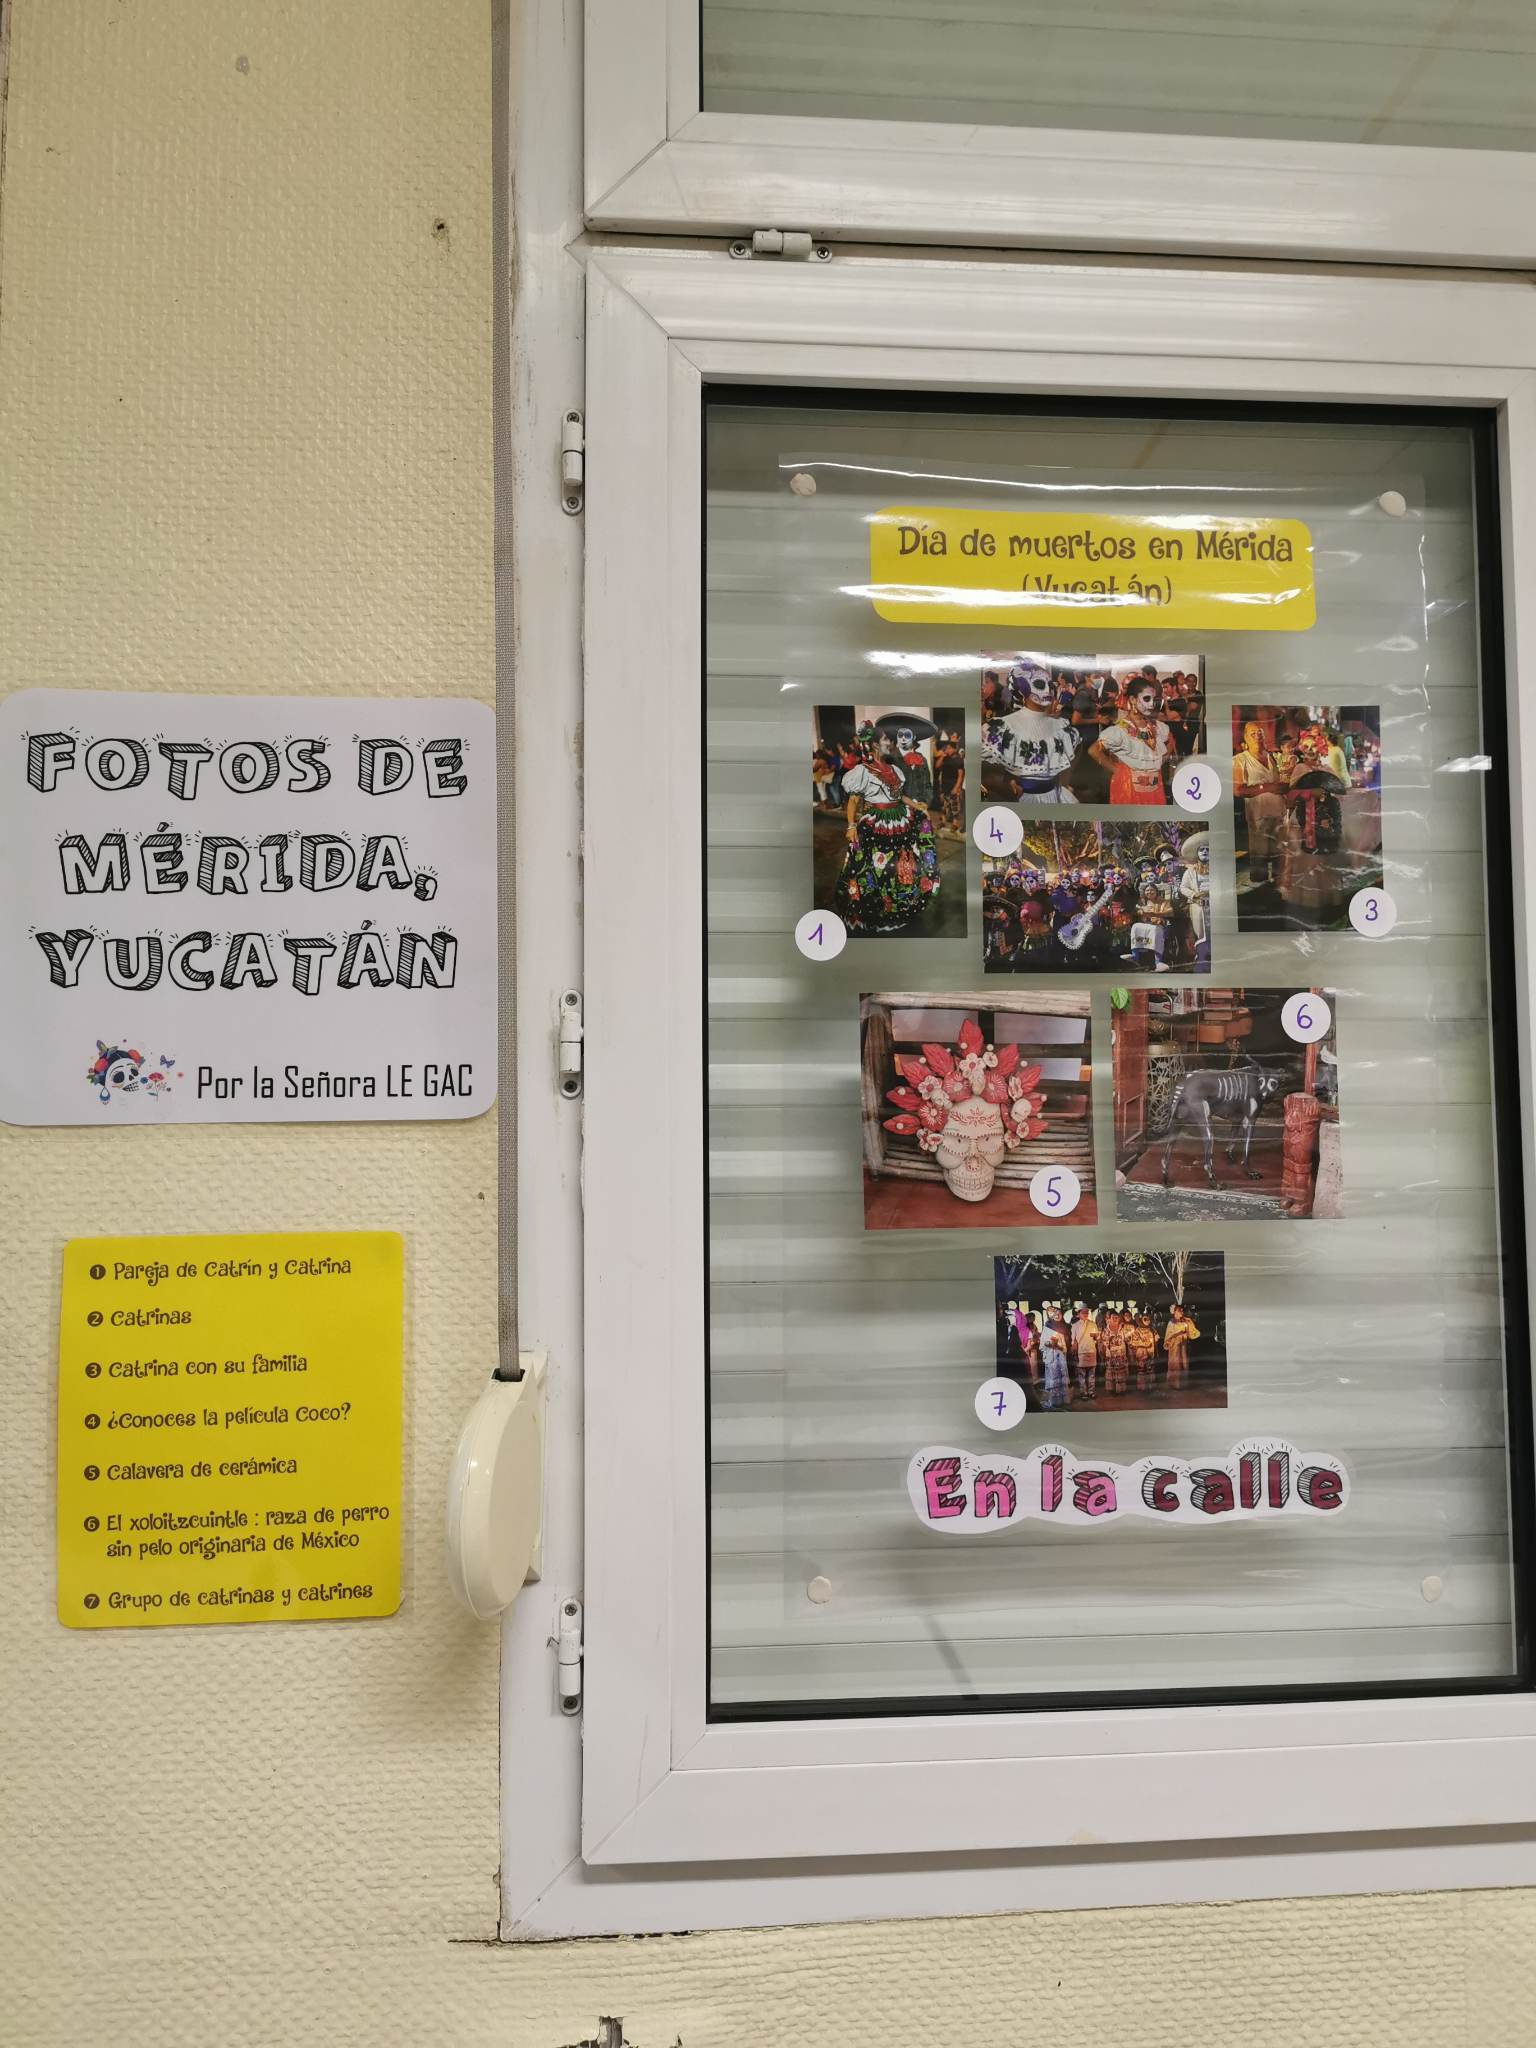 FOTOS DE
MÉRIDA,
YUCATÁN
Por la Señora LE GAC
❶ Pareja de Catrín y Catrina
❷ Catrinas
❸ Catrina con su familia
❹ ¿Conoces la película Coco?
❺ Calavera de cerámica
❻ El xoloitzcuintle : raza de perro
sin pelo originaria de México
❼ Grupo de catrinas y catrines
Día de muertos en Mérida
(Yucatán)
1
2
3
4
5
6
7
En la calle